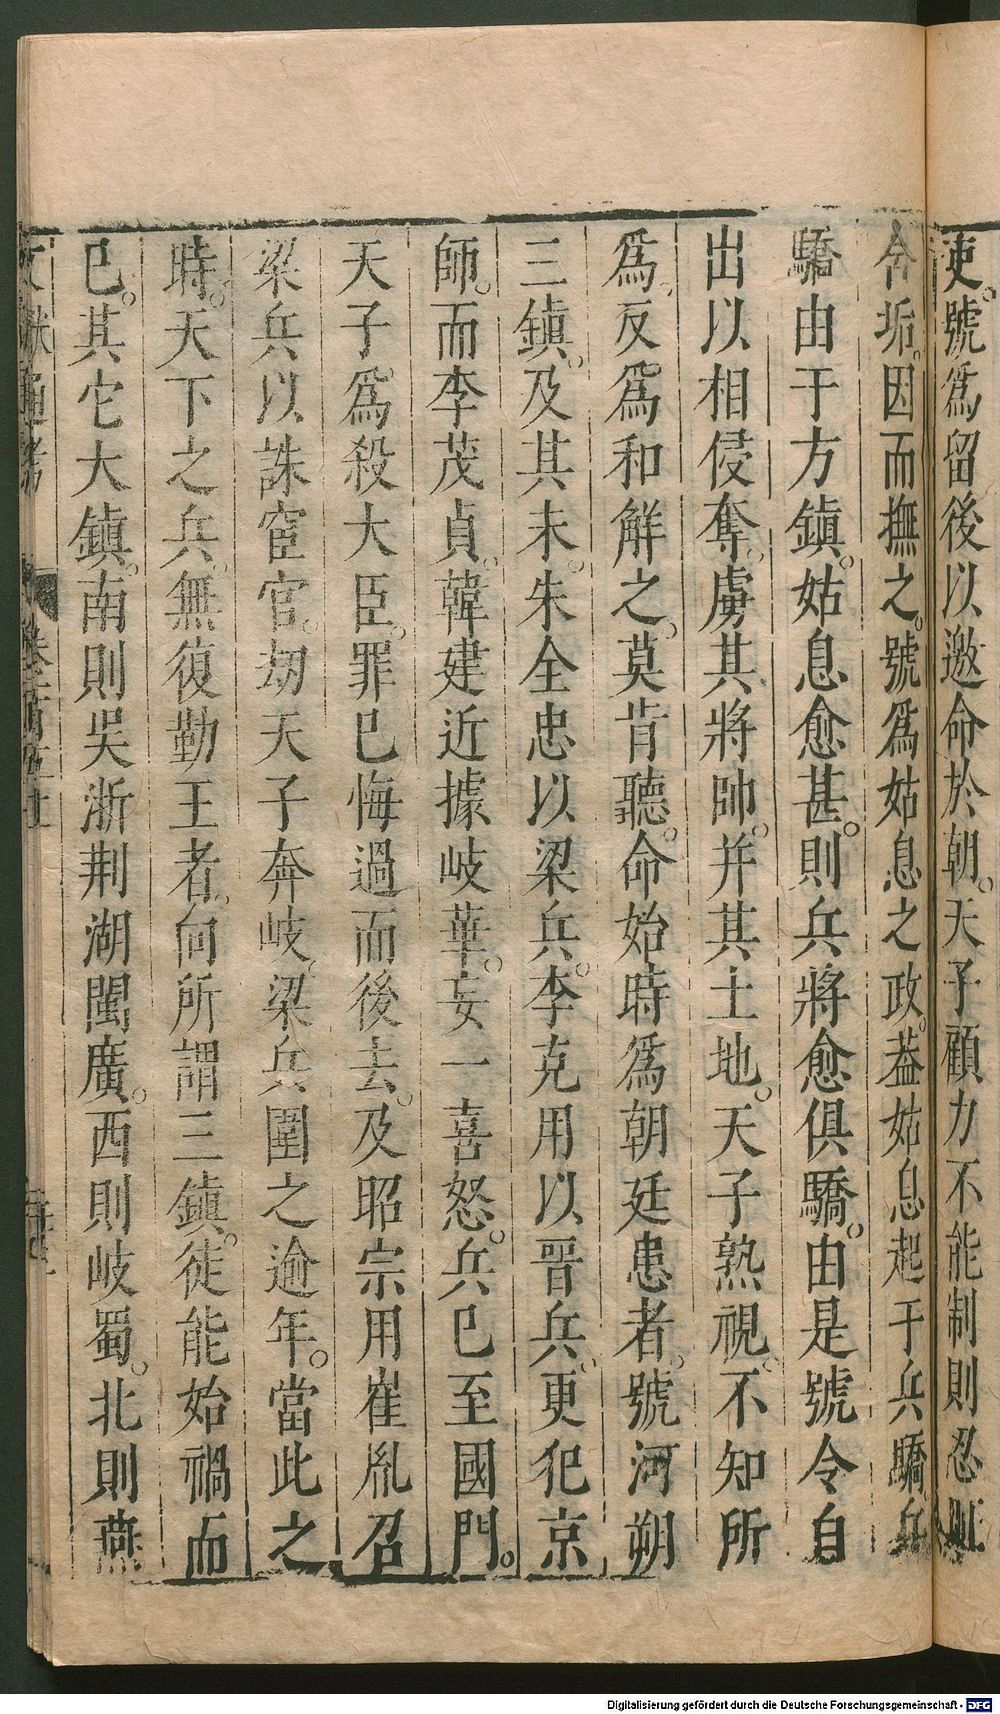 吏。號爲留後以邀命於朝。天子顧力不能制則忍恥
含垢。因而撫之。號爲姑息之政。葢姑息起于兵驕。兵
驕由于方鎮。姑息愈甚。則兵將愈俱驕。由是號令自
出以相侵奪。虜其將帥。并其土地。天子熟視。不知所
爲。反爲和解之。莫肯聽。命始時爲朝廷患者。號河朔
三鎮。及其末。朱全忠以梁兵。李克用以晋兵。更犯京
師。而李茂貞。韓建近據岐華。妄一喜怒。兵巳至國門。
天子爲殺大臣。罪巳悔過而後去。及昭宗用崔胤召
梁兵以誅宦官。刼天子奔岐。梁兵圍之逾年。當此之
時。天下之兵。無復勤王者。向所謂三鎮。徒能始禍而
巳。其它大鎮。南則吳浙荆湖閩廣。西則岐蜀。北則燕
文獻通考
Digitalisierung gefördert durch die Deutsche Forschungsgemeinschaft - DFG